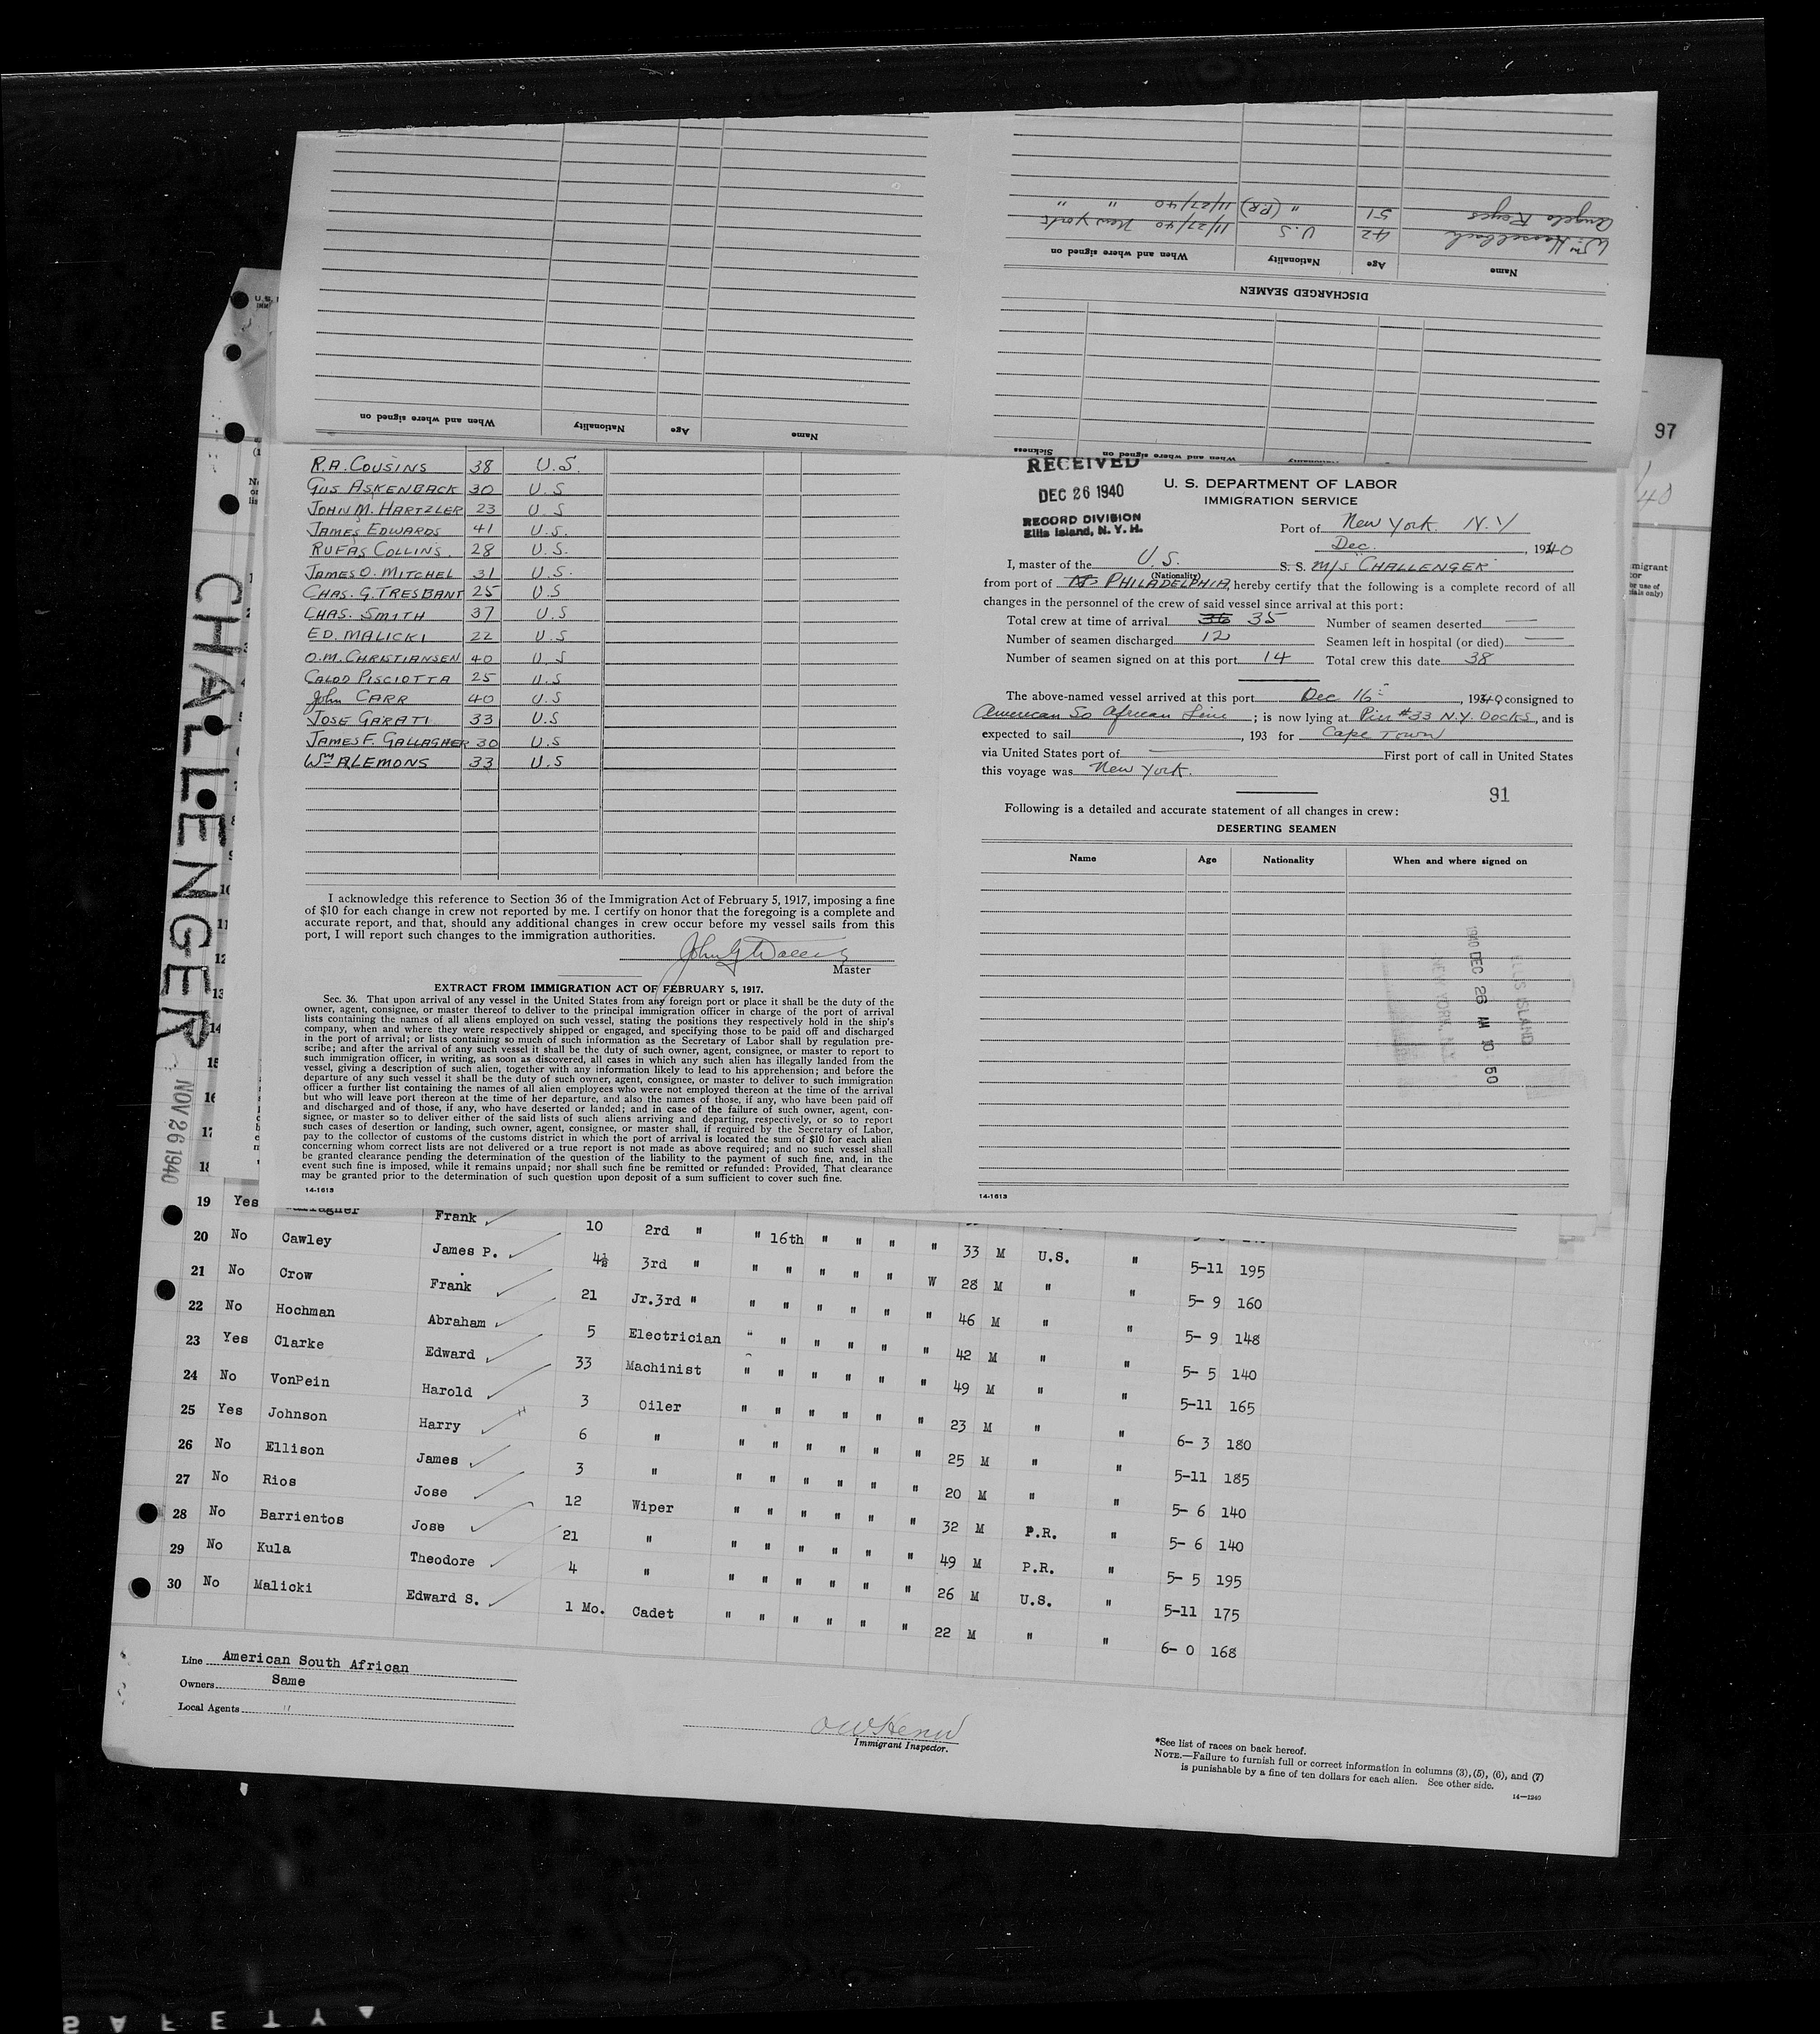 Wm. Hasselbach 42 U.S. 11/27/40 New York
Angelo Reyes 51 " (PR) 11/27/40 " "
Name Age Nationality When and where signed on
DISCHARGED SEAMEN
Name Age Nationality When and where signed on
When and where signed on Sickness
97
R.A. COUSINS 38 U.S.
GUS ASKENBACK 30 U.S
JOHN M. HARTZLER 23 U.S
JAMES EDWARDS 41 U.S.
RUFAS COLLINS. 28 U.S.
JAMES O. MITCHEL 31 U.S.
CHAS. G. TRESBANT 25 U.S
CHAS. SMITH 37 U.S
ED. MALICKI 22 U.S
O.M. CHRISTIANSEN 40 U.S
CALOD PISCIOTTA 25 U.S
John CARR 40 U.S
JOSE GARATI 33 U.S
JAMES F. GALLAGHER 30 U.S
Wm ALEMONS 33 U.S
I acknowledge this reference to Section 36 of the Immigration Act of February 5, 1917, imposing a fine
of $10 for each change in crew not reported by me. I certify on honor that the foregoing is a complete and
accurate report, and that, should any additional changes in crew occur before my vessel sails from this
port, I will report such changes to the immigration authorities.
Master
EXTRACT FROM IMMIGRATION ACT OF FEBRUARY 5, 1917.
Sec. 36. That upon arrival of any vessel in the United States from any foreign port or place it shall be the duty of the
owner, agent, consignee, or master thereof to deliver to the principal immigration officer in charge of the port of arrival
lists containing the names of all aliens employed on such vessel, stating the positions they respectively hold in the ship's
company, when and where they were respectively shipped or engaged, and specifying those to be paid off and discharged
in the port of arrival; or lists containing so much of such information as the Secretary of Labor shall by regulation pre-
scribe; and after the arrival of any such vessel it shall be the duty of such owner, agent, consignee, or master to report to
such immigration officer, in writing, as soon as discovered, all cases in which any such alien has illegally landed from the
vessel, giving a description of such alien, together with any information likely to lead to his apprehension; and before the
departure of any such vessel it shall be the duty of such owner, agent, consignee, or master to deliver to such immigration
officer a further list containing the names of all alien employees who were not employed thereon at the time of the arrival
but who will leave port thereon at the time of her departure, and also the names of those, if any, who have been paid off
and discharged and of those, if any, who have deserted or landed; and in case of the failure of such owner, agent, con-
signee, or master so to deliver either of the said lists of such aliens arriving and departing, respectively, or so to report
such cases of desertion or landing, such owner, agent, consignee, or master shall, if required by the Secretary of Labor,
pay to the collector of customs of the customs district in which the port of arrival is located the sum of $10 for each alien
concerning whom correct lists are not delivered or a true report is not made as above required; and no such vessel shall
be granted clearance pending the determination of the question of the liability to the payment of such fine, and, in the
event such fine is imposed, while it remains unpaid; nor shall such fine be remitted or refunded: Provided, That clearance
may be granted prior to the determination of such question upon deposit of a sum sufficient to cover such fine.
14-1613
RECEIVED
DEC 26 1940
RECORD DIVISION
Ellis Island, N. Y. H.
U. S. DEPARTMENT OF LABOR
IMMIGRATION SERVICE
Port of New York. N.Y
Dec. , 1940
I, master of the U.S. S. S. M/S CHALLENGER
(Nationality)
from port of PHILADELPHIA, hereby certify that the following is a complete record of all
changes in the personnel of the crew of said vessel since arrival at this port:
Total crew at time of arrival 36 35 Number of seamen deserted
Number of seamen discharged 12 Seamen left in hospital (or died)
Number of seamen signed on at this port 14 Total crew this date 38
The above-named vessel arrived at this port Dec 16 , 1940 consigned to
American So African Line ; is now lying at Pier #33 N.Y. Docks, and is
expected to sail , 193 for Cape Town
via United States port of First port of call in United States
this voyage was New York.
91
Following is a detailed and accurate statement of all changes in crew:
DESERTING SEAMEN
Name Age Nationality When and where signed on
ELLIS ISLAND
1940 DEC 26 AM 10 50
NEW YORK
14-1613
CHALLENGER
NOV 26 1940
19 Yes Gallagher Frank 10 2rd " " 16th " " " " 33 M U.S. " 5-11 195
20 No Cawley James P. 4½ 3rd " " " " " " W 28 M " " 5- 9 160
21 No Crow Frank 21 Jr.3rd " " " " " " " 46 M " " 5- 9 148
22 No Hochman Abraham 5 Electrician " " " " " " 42 M " " 5- 5 140
23 Yes Clarke Edward 33 Machinist " " " " " " 49 M " " 5-11 165
24 No VonPein Harold 3 Oiler " " " " " " 23 M " " 6- 3 180
25 Yes Johnson Harry 6 " " " " " " " 25 M " " 5-11 185
26 No Ellison James 3 " " " " " " " 20 M " " 5- 6 140
27 No Rios Jose 12 Wiper " " " " " " 32 M P.R. " 5- 6 140
28 No Barrientos Jose 21 " " " " " " " 49 M P.R. " 5- 5 195
29 No Kula Theodore 4 " " " " " " " 26 M U.S. " 5-11 175
30 No Malicki Edward S. 1 Mo. Cadet " " " " " " 22 M " " 6- 0 168
Line American South African
Owners Same
Local Agents "
Immigrant Inspector.
*See list of races on back hereof.
NOTE.—Failure to furnish full or correct information in columns (3), (5), (6), and (7)
is punishable by a fine of ten dollars for each alien. See other side.
14—1240
SAFETY